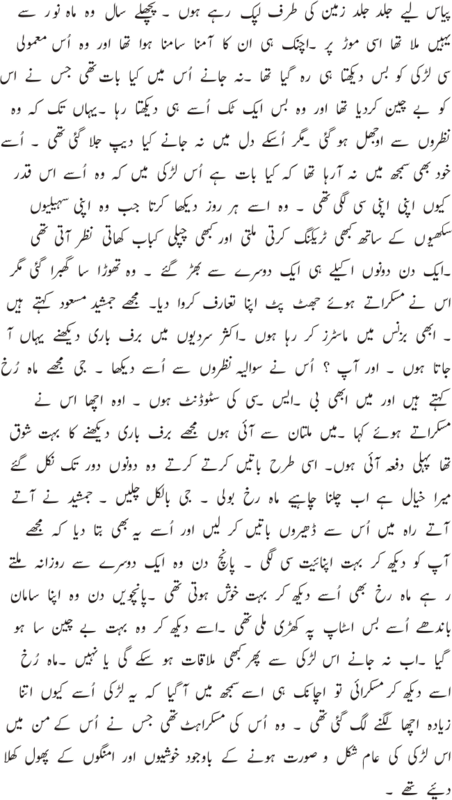 پیاس لیے جلد جلد زمین کی طرف لپک رہے ہوں ۔ پچھلے سال وہ ماہ نور سے
یہیں ملا تھا اسی موڑ پر ۔اچنک ہی ان کا آمنا سامنا ہوا تھا اور وہ اُس معمولی
سی لڑکی کو بس دیکھتا ہی رہ گیا تھا ۔نہ جانے اُس میں کیا بات تھی جس نے اس
کو بے چین کردیا تھا اور وہ بس ایک ٹک اُسے ہی دیکھتا رہا ۔یہاں تک کہ وہ
نظروں سے اوجھل ہو گئی ۔مگر اُسکے دل میں نہ جانے کیا دیپ جلا گئی تھی ۔ اُسے
خود بھی سمجھ میں نہ آرہا تھا کہ کیا بات ہے اُس لڑکی میں کہ وہ اُسے اس قدر
کیوں اپنی اپنی سی لگی تھی ۔ وہ اسے ہر روز دیکھا کرتا جب وہ اپنی سہیلیوں
سکھیوں کے ساتھ کبھی ٹریکنگ کرتی ملتی اور کبھی چپلی کباب کھاتی نظر آتی تھی
۔ایک دن دونوں اکیلے ہی ایک دوسرے سے بھڑ گئے ۔ وہ تھوڑا سا گھبرا گئی مگر
اس نے مسکراتے ہوئے جھٹ پٹ اپنا تعارف کروا دیا۔ مجھے جمشید مسعود کہتے ہیں
۔ ابھی بزنس میں ماسٹرز کر رہا ہوں ۔اکثر سردیوں میں برف باری دیکھنے یہاں آ
جاتا ہوں ۔ اور آپ ؟ اُس نے سوالیہ نظروں سے اُسے دیکھا ۔ جی مجھے ماہ رُخ
کہتے ہیں اور میں ابھی بی ۔ایس ۔سی کی سٹوڈنٹ ہوں ۔ اوہ اچھا اس نے
مسکراتے ہوئے کہا ۔میں ملتان سے آئی ہوں مجھے برف باری دیکھنے کا بہت شوق
تھا پہلی دفعہ آئی ہوں۔ اسی طرح باتیں کرتے کرتے وہ دونوں دور تک نکل گئے
میرا خیال ہے اب چلنا چاہیے ماہ رخ بولی ۔ جی بالکل چلیں ۔ جمشید نے آتے
آتے راہ میں اُس سے ڈھیروں باتیں کر لیں اور اُسے یہ بھی بتا دیا کہ مجھے
آپ کو دیکھ کر بہت اپنائیت سی لگی ۔ پانچ دن وہ ایک دوسرے سے روزانہ ملتے
ر ہے ماہ رخ بھی اُسے دیکھ کر بہت خوش ہوتی تھی ۔پانچویں دن وہ اپنا سامان
باندھے اُسے بس اسٹاپ پہ کھڑی ملی تھی ۔اسے دیکھ کر وہ بہت بے چین سا ہو
گیا ۔اب نہ جانے اس لڑکی سے پھر کبھی ملاقات ہو سکے گی یا نہیں ۔ماہ رُخ
اسے دیکھ کر مسکرائی تو اچانک ہی اسے سمجھ میں آگیا کہ یہ لڑکی اُسے کیوں اتنا
زیادہ اچھا لگنے لگ گئی تھی ۔ وہ اُس کی مسکراہٹ تھی جس نے اُس کے من میں
اس لڑکی کی عام شکل و صورت ہونے کے باوجود خوشیوں اور امنگوں کے پھول کھلا
دیئے تھے ۔